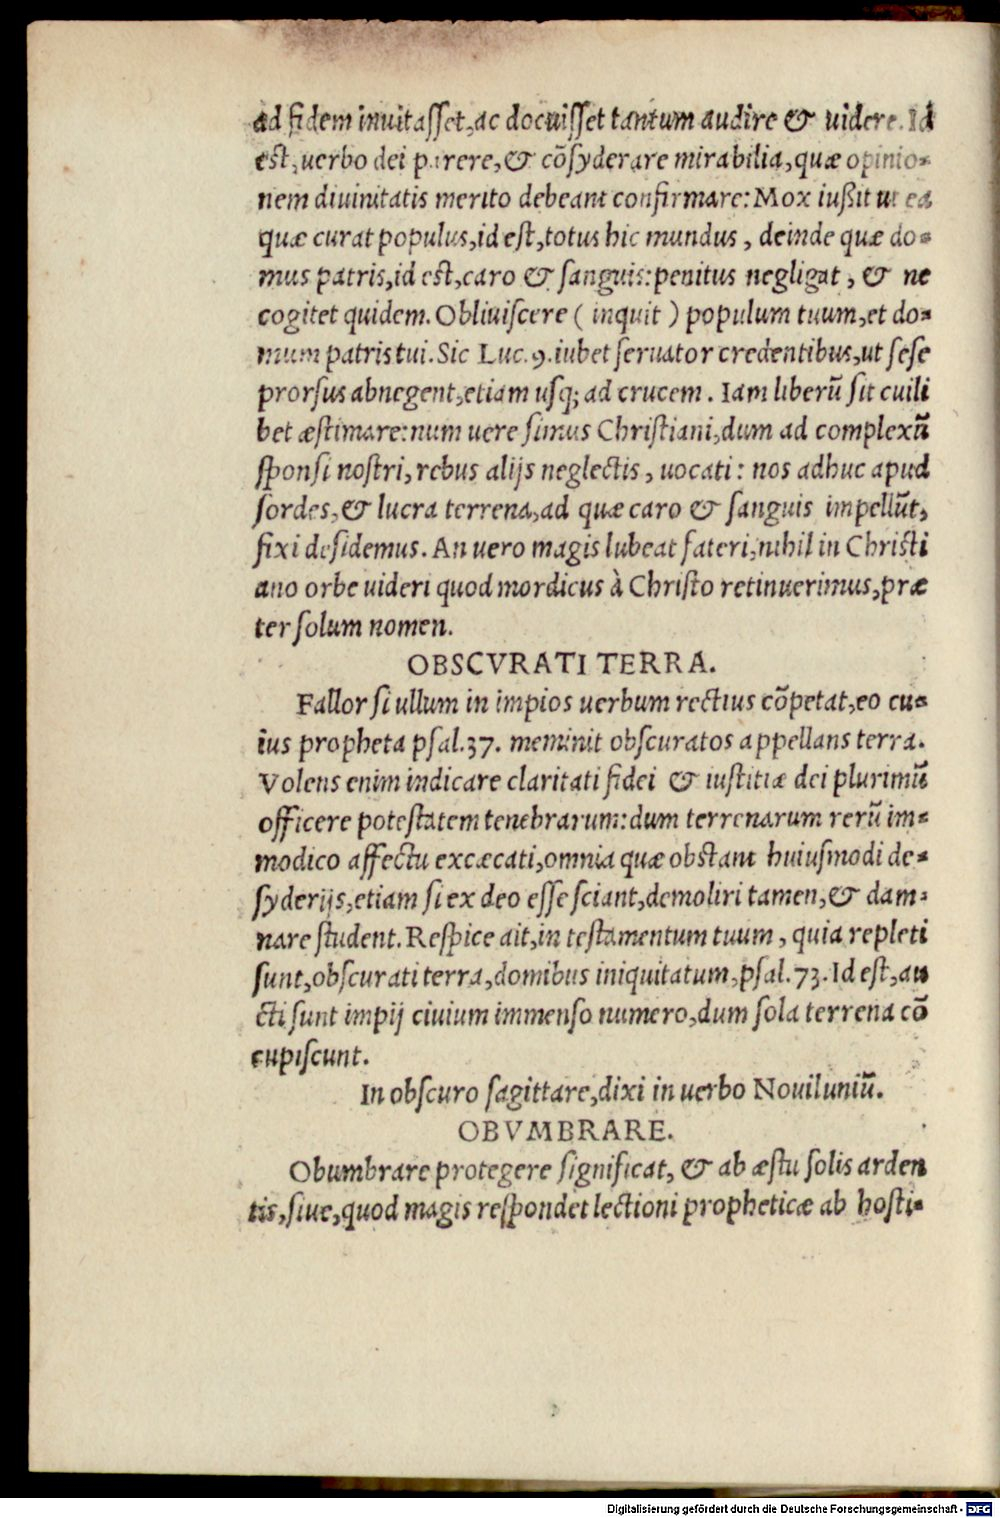 ad fidem inuitasset, ac docuisset tantum audire & uidere. Id
est, uerbo dei parere, & cōsyderare mirabilia, quæ opinio-
nem diuinitatis merito debeant confirmare: Mox iußit ut ea
quæ curat populus, id est, totus hic mundus, deinde quæ do-
mus patris, id est, caro & sanguis: penitus negligat, & ne
cogitet quidem. Obliuiscere ( inquit ) populum tuum, et do-
mum patris tui. Sic Luc. 9. iubet seruator credentibus, ut sese
prorsus abnegent, etiam usq; ad crucem. Iam liberū sit cuili
bet æstimare: num uere simus Christiani, dum ad complexū
sponsi nostri, rebus alijs neglectis, uocati: nos adhuc apud
sordes, & lucra terrena, ad quæ caro & sanguis impellūt,
fixi desidemus. An uero magis lubeat fateri, nihil in Christi
ano orbe uideri quod mordicus à Christo retinuerimus, præ
ter solum nomen.
OBSCVRATI TERRA.
Fallor si ullum in impios uerbum rectius cōpetat, eo cu-
ius propheta psal. 37. meminit obscuratos appellans terra.
Volens enim indicare claritati fidei & iustitiæ dei plurimū
officere potestatem tenebrarum: dum terrenarum rerū im-
modico affectu excæcati, omnia quæ obstant huiusmodi de-
syderijs, etiam si ex deo esse sciant, demoliri tamen, & dam-
nare student. Respice ait, in testamentum tuum, quia repleti
sunt, obscurati terra, domibus iniquitatum, psal. 73. Id est, au
cti sunt impij ciuium immenso numero, dum sola terrena cō
cupiscunt.
In obscuro sagittare, dixi in uerbo Nouiluniū.
OBVMBRARE.
Obumbrare protegere significat, & ab æstu solis arden
tis, siue, quod magis respondet lectioni propheticæ ab hosti-
Digitalisierung gefördert durch die Deutsche Forschungsgemeinschaft - DFG